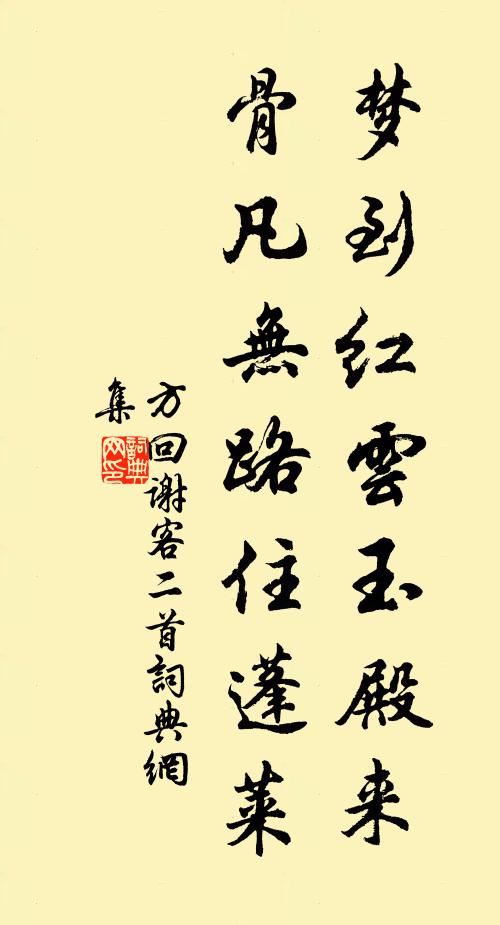 梦到红雲玉殿来
骨凡無路住蓬莱
方回谢客二首詞典網
集
詞典网印